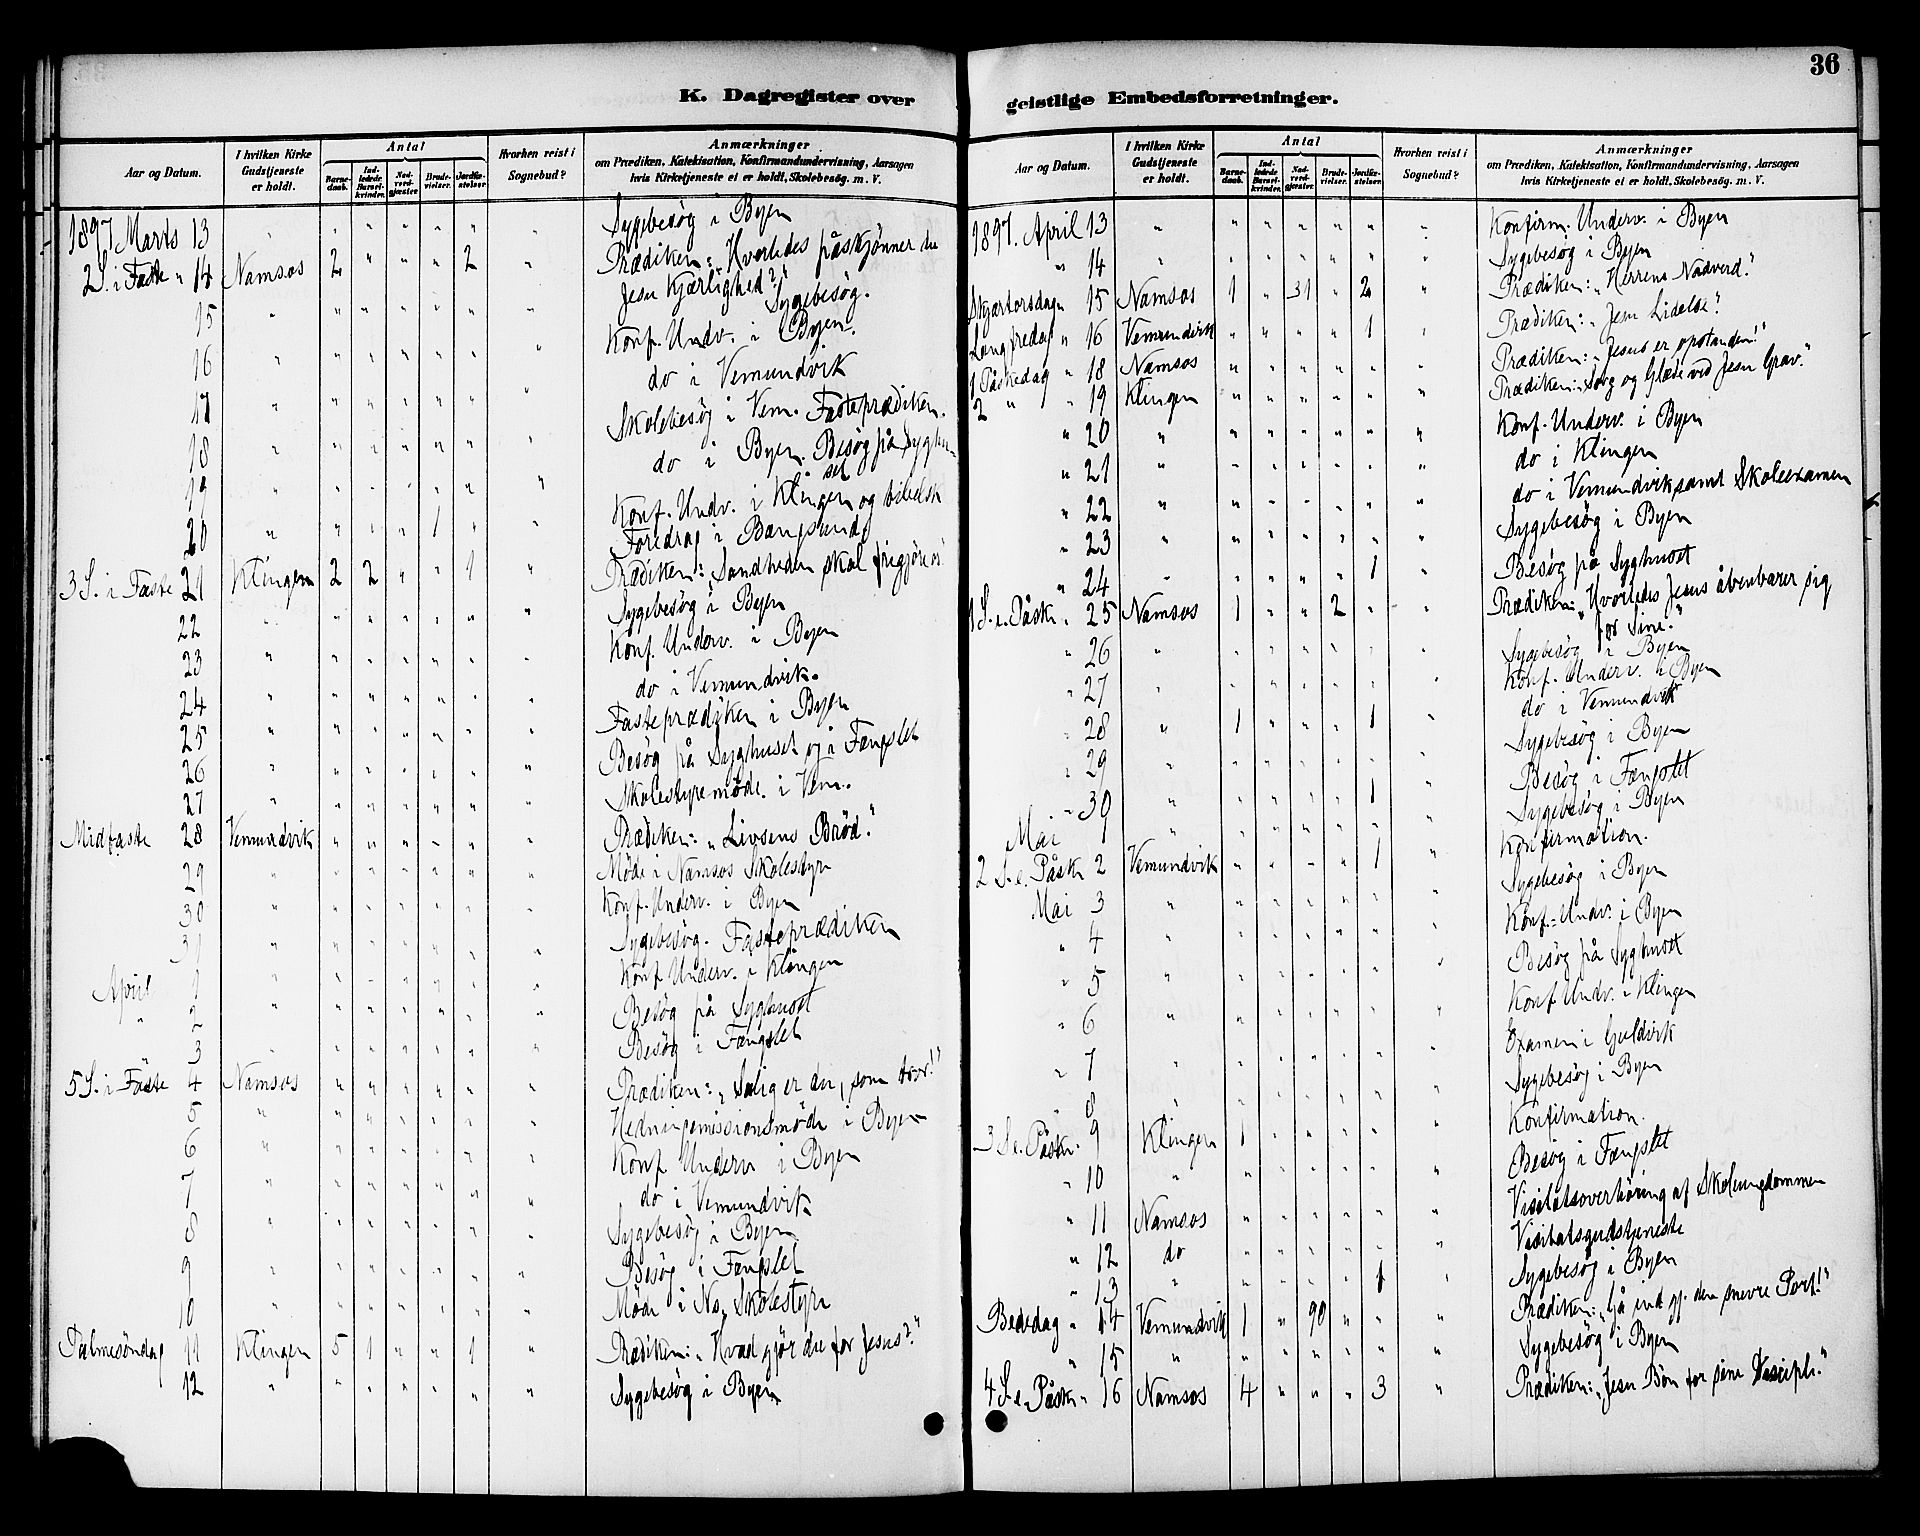 K. Dagregister over
Aar og Datum. I hvilken Kirke Gudstjeneste er holdt. Antal Barnedaab. Indledede Barselkvinder. Nadverdgjæster. Brudevielser. Jordfæstelser. Hvorhen reist i Sognebud? Anmærkninger om Prædiken, Katekisation, Konfirmandundervisning, Aarsagen hvis Kirketjeneste ei er holdt, Skolebesøg. m. V.
1897 Marts 13 " " " " " " " Sygebesøg i Byen
2 S. i Faste " 14 Namsos 2 " " " 2 " Prædiken: „Hvorledes påskjønner du
Jesu Kjærlighed?" Sygebesøg.
15 " " " " " " " Konf. Undv. i Byen.
16 " " " " " " " do i Vemundvik
17 " " " " " " " Skolebesøg i Vem. Fasteprædiken.
18 " " " " " " " do i Byen. Besøg på Syghuset
19 " " " " " " " Konf. Undv. i Klingen og bibelsk
20 " " " " 1 " " Foredrag i Bangsund
3 S. i Faste 21 Klingen 2 2 " " 1 " Prædiken: „Sandheden skal frigjøre
22 " " " " " " " Sygebesøg i Byen
23 " " " " " " " Konf. Underv. i Byen
24 " " " " " " " do i Vemundvik.
25 " " " " " " " Fasteprædiken i Byen
26 " " " " " " " Besøg på Syghuset og i Fængslet
27 " " " " " " " Skolestyremøde. i Vem.
Midfaste 28 Vemundvik " " " " " " Prædiken: „Livsens Brød."
29 " " " " " " " Møde i Namsos Skolestyre
30 " " " " " " " Konf. Underv. i Byen
31 " " " " " " " Sygebesøg. Fasteprædiken
April 1 " " " " " " " Konf Underv. i Klingen
" 2 " " " " " " " Besøg på Syghuset
3 " " " " " " " Besøg i Fængslet
5 S. i Faste 4 Namsos " " " " " " Prædiken: „Salig er den, som tror!"
5 " " " " " " " Hedningemissionsmøde i Byen
6 " " " " " " " Konf Underv i Byen
7 " " " " " " " do i Vemundvik
8 " " " " " " " Sygebesøg i Byen
9 " " " " " " " Besøg i Fængslet
10 " " " " " " " Møde i Ns. Skolestyre
Palmesøndag 11 Klingen 5 1 " " 1 " Prædiken: „Hvad gjør du for Jesus?"
12 " " " " " " " Sygebesøg i Byen
geistlige Embedsforretninger.
36
Aar og Datum. I hvilken Kirke Gudstjeneste er holdt. Antal Barnedaab. Indledede Barselkvinder. Nadverdgjæster. Brudevielser. Jordfæstelser. Hvorhen reist i Sognebud? Anmærkninger om Prædiken, Katekisation, Konfirmandundervisning, Aarsagen hvis Kirketjeneste ei er holdt, Skolebesøg. m. V.
1897. April 13 " " " " " " " Konfirm. Underv. i Byen
" 14 " " " " " " " Sygebesøg i Byen
Skjærtorsdag " 15 Namsos 1 " 31 " 2 " Prædiken: „Herrens Nadverd."
Langfredag " 16 Vemundvik " " " " 1 " Prædiken: „Jesu Lidelse."
1 Påskedag " 18 Namsos " " " " " " Prædiken: „Jesus er opstanden!"
2 " " 19 Klingen " " " " " " Prædiken: Sorg og Glæde ved Jesu Grav."
" 20 " " " " " " " Konf. Underv. i Byen
" 21 " " " " " " " do i Klingen
" 22 " " " " " " " do i Vemundvik samt Skoleexamen
" 23 " " " " " " " Sygebesøg i Byen
" 24 " " " " " 1 " Besøg på Syghuset
1 S. e. Påske " 25 Namsos 1 " " 2 " " Prædiken: „Hvorledes Jesus åbenbarer sig
for Sine."
" 26 " " " " " " " Sygebesøg i Byen
" 27 " " " " " " " Konf. Underv. i Byen
" 28 " 1 " " " 1 " do i Vemundvik
" 29 " " " " " " " Sygebesøg i Byen
" 30 " " " " " 1 " Besøg i Fængslet
Mai 1 " " " " " " " Sygebesøg i Byen
2 S. e. Påske 2 Vemundvik " " " " 1 " Konfirmation.
Mai 3 " " " " " " " Sygebesøg i Byen
" 4 " " " " " " " Konf. Undv. i Byen
" 5 " " " " " " " Besøg på Syghuset
" 6 " " " " " " " Konf Undv. i Klingen
" 7 " " " " " " " Examen i Guldvik
" 8 " " " " " " " Sygebesøg i Byen
3 S e. Påske 9 Klingen 1 " " " " " Konfirmation.
" 10 " " " " " " " Besøg i Fængslet
" 11 Namsos " " " " " " Visitatsoverhøring af Skoleungdommen
" 12 do " " " " " " Visitatsgudstjeneste
" 13 " " " " " 1 " Sygebesøg i Byen
Bededag " 14 Vemundvik 1 " 90 " " " Prædiken: „Gå ind gj. den snevre Port!"
" 15 " " " " " " " Sygebesøg i Byen
4 S e. Påske " 16 Namsos 4 " " " 3 " Prædiken: „Jesu Bøn for sine Discipl."